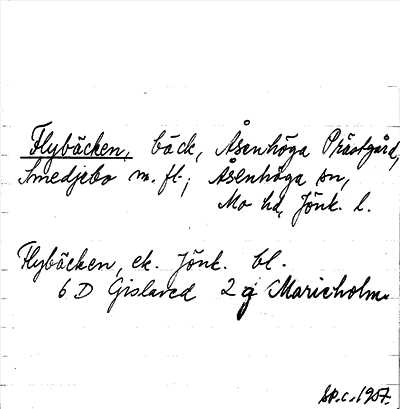 Flybäcken, bäck, Åsenhöga Prästgård,
Smedjebo m. fl., Åsenhöga sn,
Mo hd, Jönk. l.
Flybäcken, ek. Jönk. bl.
6 D Gislaved 2 g Marieholm.
1957.